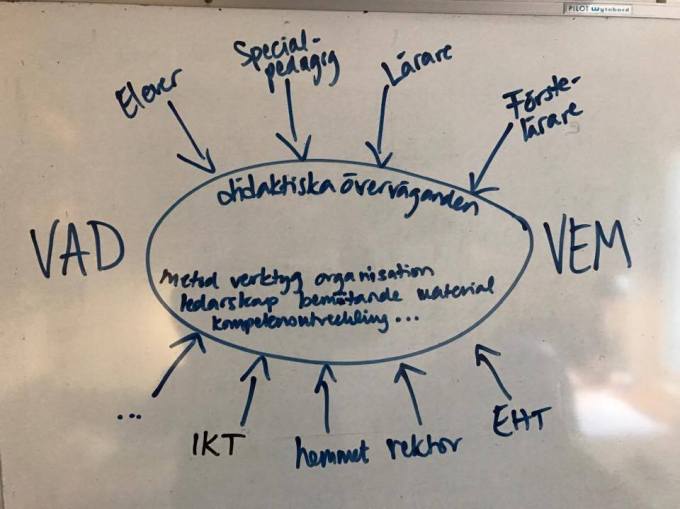 PILOT Wyteboard
Elever
Special-
pedagog
Lärare
Förste-
lärare
didaktiska överväganden
VAD
VEM
metod verktyg organisation
ledarskap bemötande material
kompetensutveckling...
...
IKT
hemmet
rektor
EHT